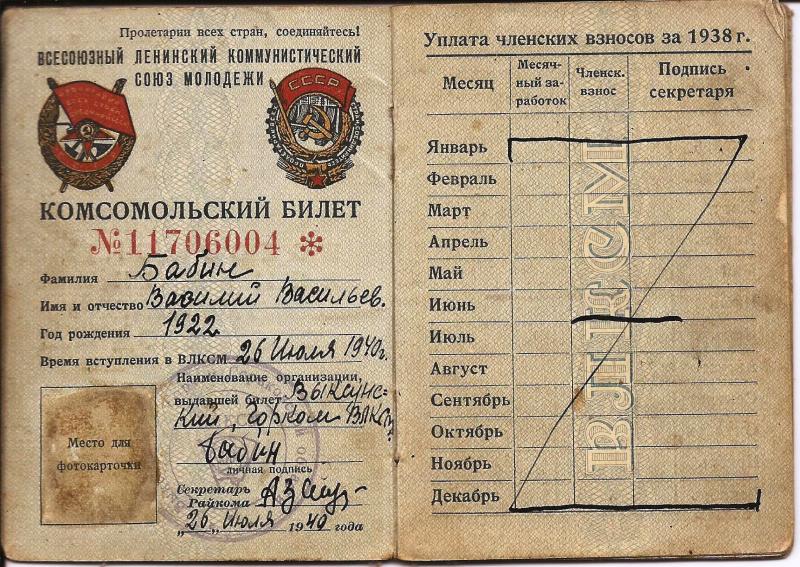 Пролетарии всех стран, соединяйтесь!
ВСЕСОЮЗНЫЙ ЛЕНИНСКИЙ КОММУНИСТИЧЕСКИЙ
СОЮЗ МОЛОДЕЖИ
СССР
КОМСОМОЛЬСКИЙ БИЛЕТ
№11706004 *
Фамилия Бабин
Имя и отчество Василий Васильев.
Год рождения 1922
Время вступления в ВЛКСМ 26 Июля 1940г.
Наименование организации,
выдавшей билет Выксунс-
кий, Горком ВЛКСМ
Бабин
личная подпись
Секретарь
Райкома
"26" Июля 1940 года
Место для
фотокарточки
Уплата членских взносов за 1938 г.
Месяц Месяч-ный за-работок Членск. взнос Подпись секретаря
Январь
Февраль
Март
Апрель
Май
Июнь
Июль
Август
Сентябрь
Октябрь
Ноябрь
Декабрь
ВЛКСМ